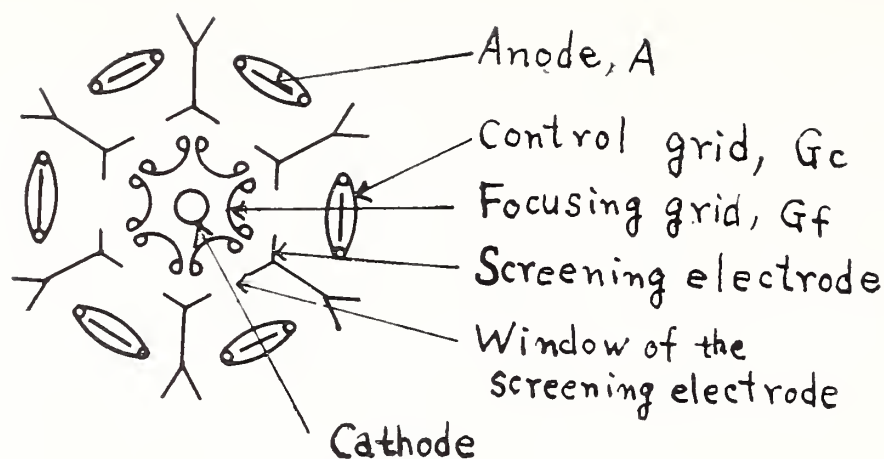 Anode, A
Control grid, Gc
Focusing grid, Gf
Screening electrode
Window of the
screening electrode
Cathode